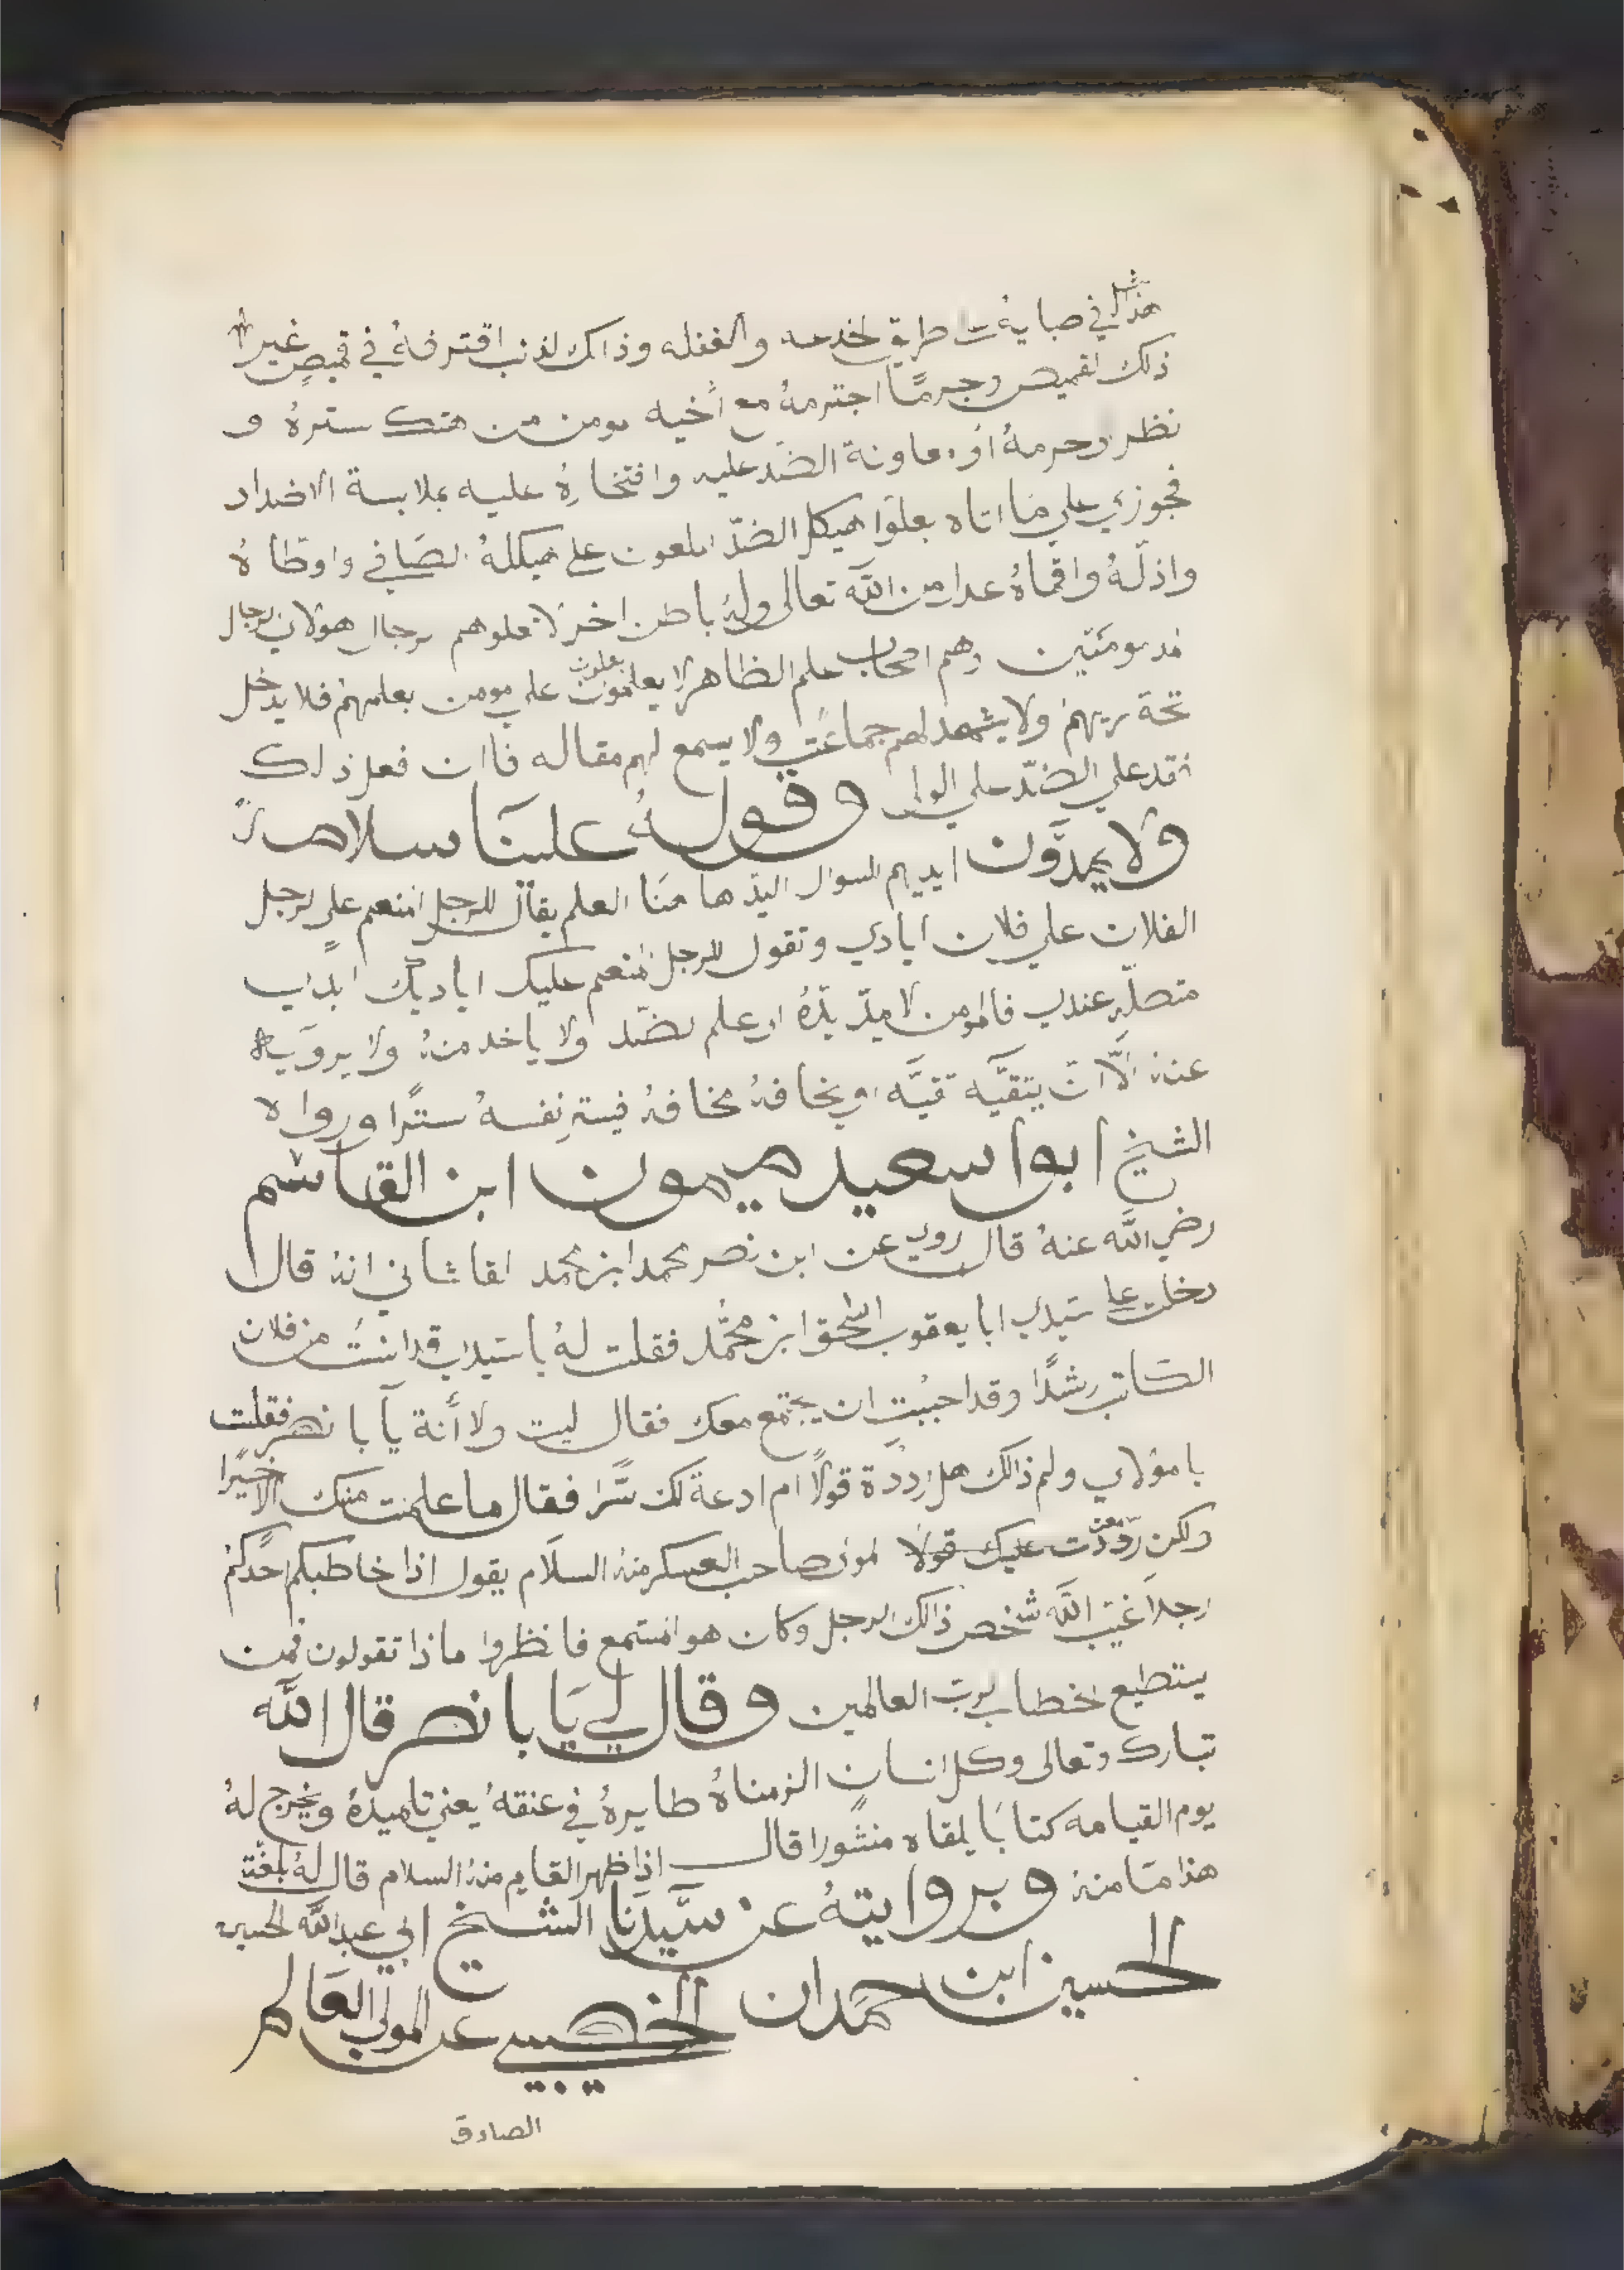 هذا في صبايه طريق الخدعه والغفله وذالك لذنب اقترفهُ في قميصٍ غير
ذلك القميص وجرمًا اجترمهُ مع أخيه مومن من هتك سترهُ و
نظر حرمهُ او معاونة الضد عليه وافتخارهِ عليه بملابسة الاضداد
فجوزي علي ما اتاه بعلوا هيكل الضدّ الملعون علي هيكلهُ الصَافي واوطاهُ
واذلّهُ واقماهُ عدل من اللّه تعالى ولهُ باطن اخر لا يعلوهم رجال هولاي رجال
مومنين وهم اصحاب علم الظاهر لا يعلمون يعلون علي مومن بعلمهمْ فلا يدخل
تحة ريهمْ ولا يشهد لهم جماعَتٍ ولا يسمع لهم مقاله فاان فعل ذلك
فقد علي الضدّ علي الولي وقولهُ علينَا سلاهم
ولا يمدّون ايديهم السوال اليد ها هنَا العلم يقال للرجل المنعم علي الرجل
الفلان علي فلان ايادي وتقول للرجل المنعم عليك اياديك ابدا
متصله عندي فالمومن لا يمدّ يدّهُ الي علم الضّد ولا ياخد منهُ ولا يرويه
عنهُ الّا انّ يتقيَّه تقيَّه او يخافهُ مخافهُ فيسترِ نفسهُ سترًا ورواه
الشيخ ابوا سعيد ميمون ابن القاسم
رضي اللَّه عنهُ قال روي عن ابن نصر محمد ابن محمد القاشاني انهُ قال
دخلت علي سَيدي ابا يعقوب اسحق ابن محمَّد فقلت لهُ يا سَيدي قد انستُ من فلان
الكَاتب رشدًا وقد احببُت ان يجتمع معك فقال ليت ولا أنة يآ با نصر فقلت
يا مولاي ولم ذالك هل رددة قولًا ام ادعة لك سَّرًا فقال ما علمت منك الا خيرًا
ولكن رَددّت عليك قولًا لمولى صاحب العسكر منهُ السلَام يقول اذا خاطبكم احَدكمْ
رجلاً غيّب اللَّه شخص ذالك الرجل وكان هو المستمع فانظروا ماذا تقولون فمن
يستطيع الخطاب لربّ العالمين وقال لي يَا با نصر قال اللَّه
تبارك وتعالى وكل انسانٍ الزمناهُ طايرهُ في عنقهُ يعني تلميدهُ ويخرج لهُ
يوم القيامه كتابًا يلقاه منشورا قال اذا ظهر القايم منهُ السلام قال لهُ بلغة
هذا مَا منهُ وبروايتهُ عن سَّيدنَا الشيخ ابي عبد اللَّه الحسين
الحسين ابن حمدان الخصيبي عن المولي العَالم
الصادق